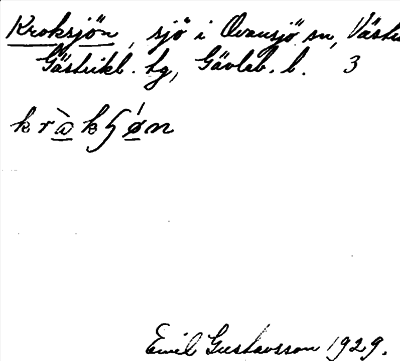 Kroksjön, sjö i Ovansjö sn, Västra
Gästrikl. tg, Gävleb. l. 3
Emil Gustavsson 1929.